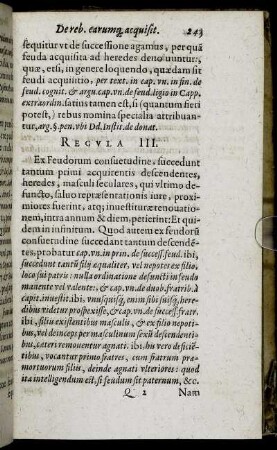 De reb. earumq; acquisit. 243
sequitur vt de successione agamus, per quã
feuda acquisita ad heredes deuoluuntur,
quæ, etsi, in genere loquendo, quædam sit
feudi acquisitio, per text. in cap. vn. in fin. de
feud. cognit. & argu. cap. vn. de feud. legio in Capp.
extraordin. satius tamen est, si (quantum fieri
potest,) rebus nomina specialia attribuan-
tur, arg. §. pen. vbi Dd. Instit. de donat.
REGVLA III.
Ex Feudorum consuetudine, succedunt
tantum primi acquirentis descendentes,
heredes, masculi seculares, qui vltimo de-
functo, saluo repræsentationis iure, proxi-
miores fuerint, atq; inuestituræ renouatio-
nem, intra annum & diem, petierint: Et qui-
dem in infinitum. Quod autem ex feudorũ
consuetudine succedant tantum descendẽ-
tes, probatur cap. vn. in prin. de success. feud. ibi,
succedunt tantũ filij æqualiter, vel nepotes ex filio,
loco sui patris: nulla ordinatione defuncti in feudo
manente vel valente: & cap. vn. de duob. fratrib. à
capit. inuestit. ibi. vnusquisq, enim sibi suisq, here-
dibus videtur prospexisse, & cap. vn. de success. fratr.
ibi, filiis existentibus masculis, & ex filio nepoti-
bus, vel deinceps per masculinum sexũ descendenti-
bus, cæteri remouentur agnati. ibi. his vero deficiẽ-
tibus, vocantur primo fratres, cum fratrum præ-
mortuorum filiis, deinde agnati vlteriores: quod
ita intelligendum est, si feudum sit paternum, &c.
Q 2 Nam